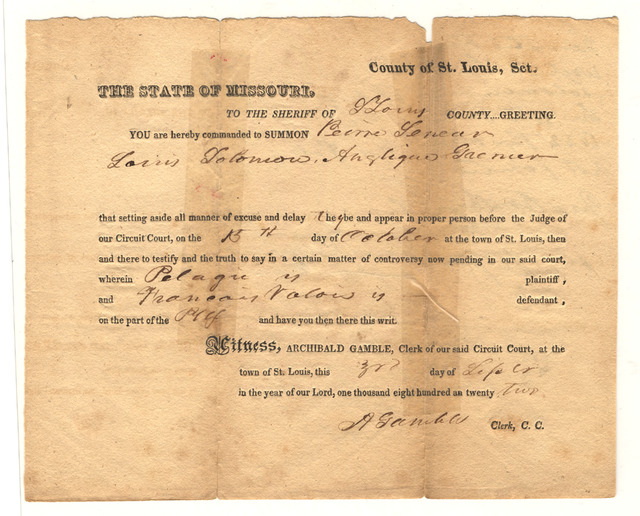 County of St. Louis, Sct.
THE STATE OF MISSOURI,
TO THE SHERIFF OF St Louis COUNTY....GREETING.
YOU are hereby commanded to SUMMON Pierre
Louis Solomon, Anglique Grenier
that setting aside all manner of excuse and delay they be and appear in proper person before the Judge of
our Circuit Court, on the 15th day of October at the town of St. Louis, then
and there to testify and the truth to say in a certain matter of controversy now pending in our said court,
wherein Pelagie is plaintiff,
and Francois Valois is defendant,
on the part of the Plff and have you then there this writ.
Witness, ARCHIBALD GAMBLE, Clerk of our said Circuit Court, at the
town of St. Louis, this 3rd day of
in the year of our Lord, one thousand eight hundred an twenty two
A Gamble Clerk, C. C.